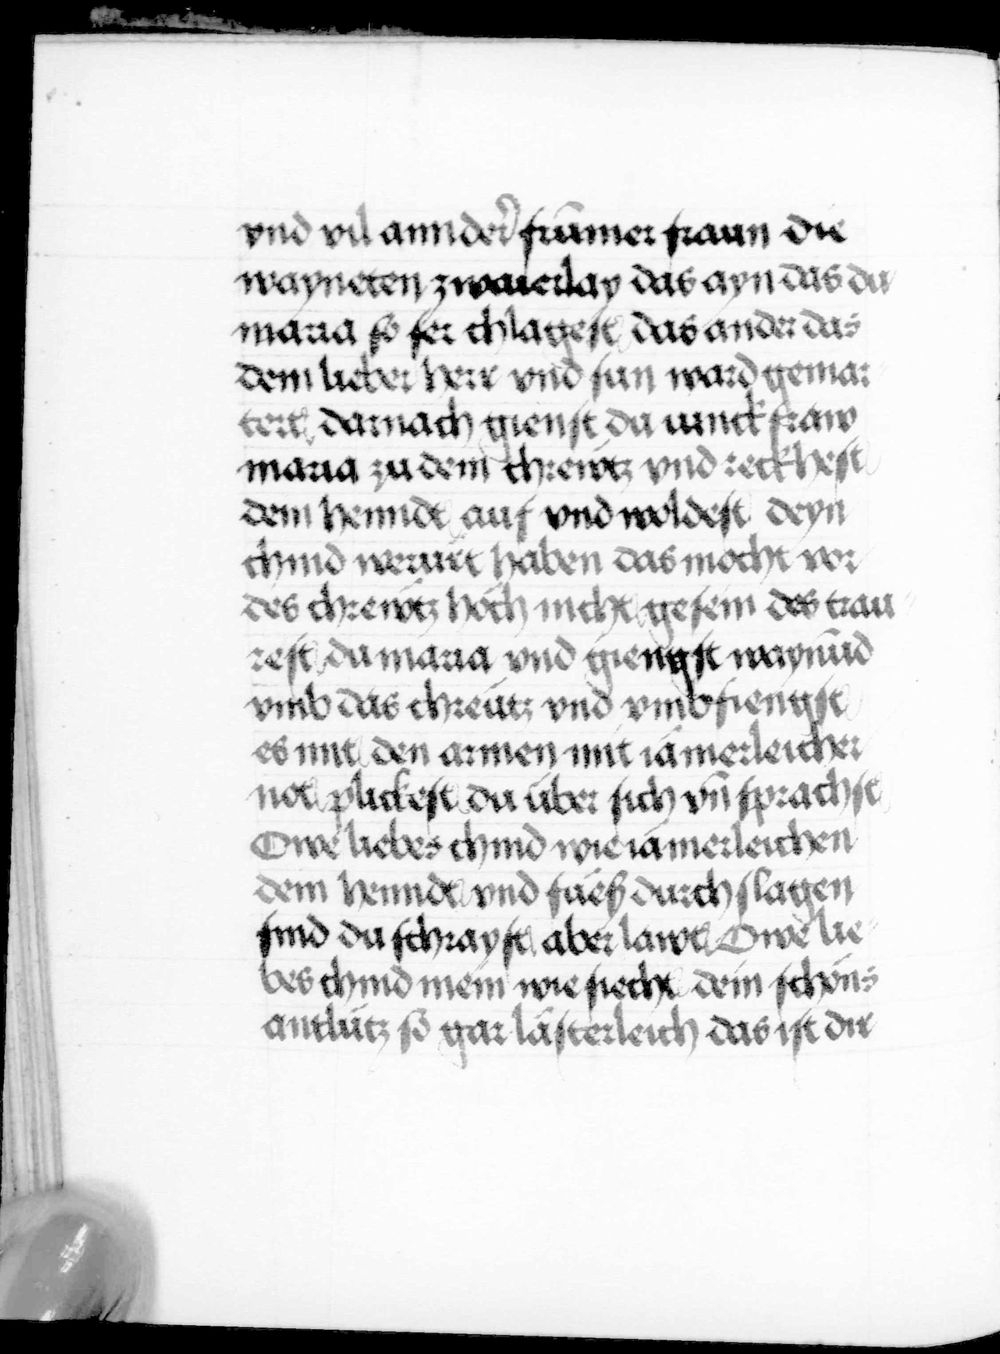 vnd vil annder frūmer fraun die
wayneten zwaierlay das ayn das du
maria so ser chlagest das ander das
dein lieber herr vnd sun ward gemar
tert darnach gienst du iunckfraw
maria zu dem chrewtz vnd reckhest
dein henndt auf vnd woldest deyn
chind werürt haben das mocht vor
des chrewtz höch nicht gesein des trau
rest du maria vnd giengst waynūd
vmb das chreütz vnd vmbfiengst
es mit den armen mit iamerleicher
not plickest du über sich vn̄ sprachst
Owe liebes chind wie iamerleichen
dein henndt vnd füeß durchslagen
sind du schrayst aber lawt Owe lie
bes chind mein wie siecht dein schöns
antlütz so gar lästerleich das ist dir